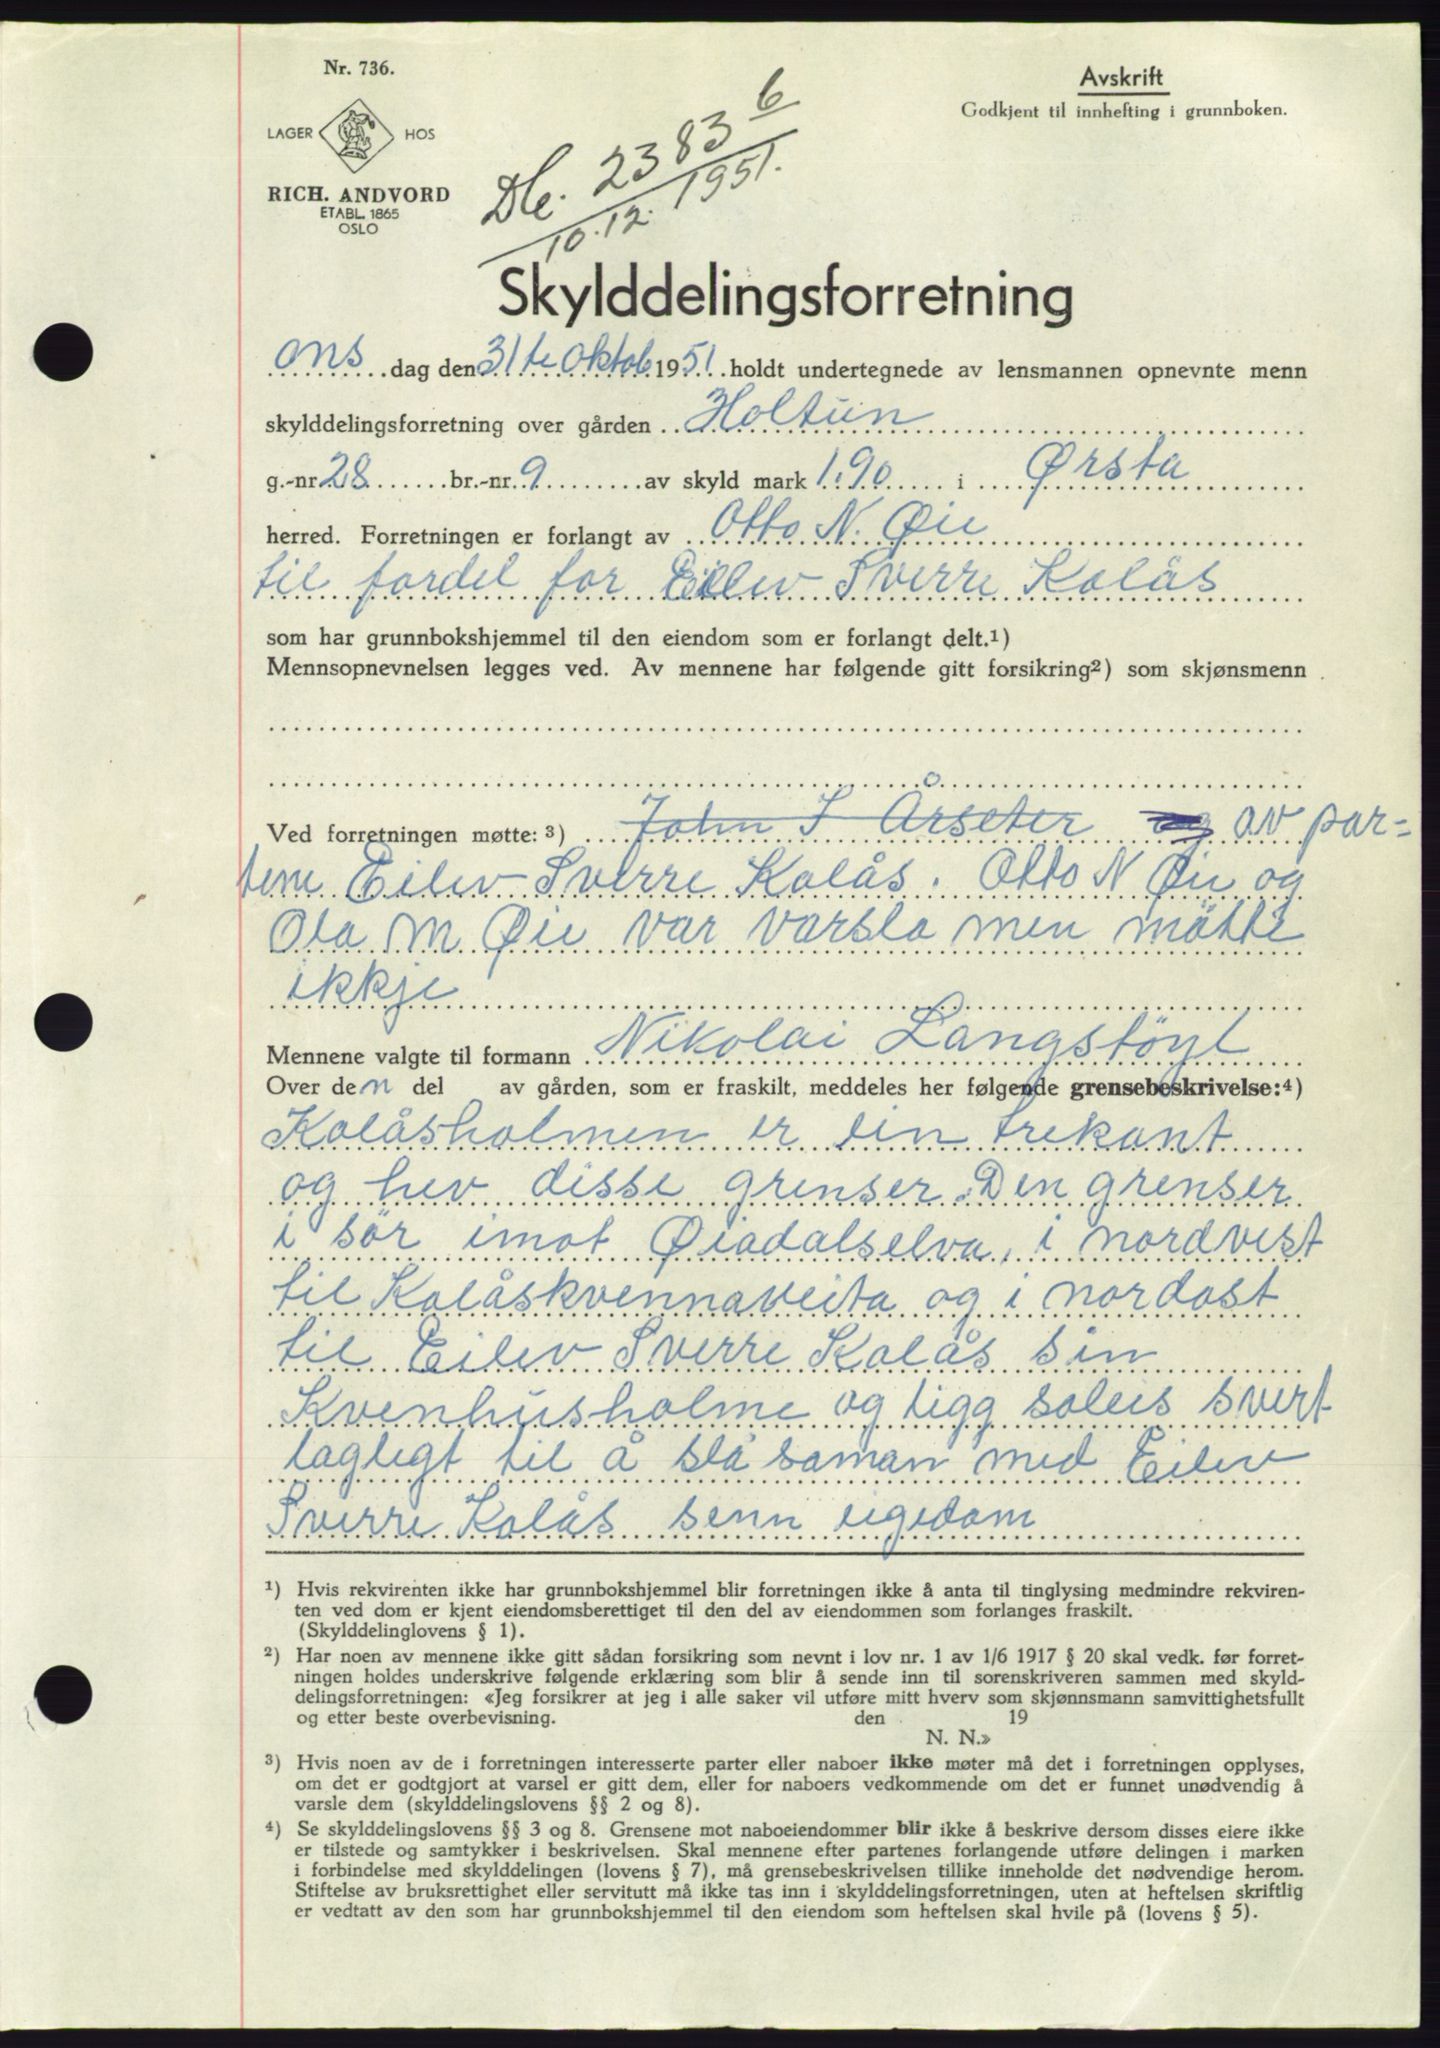 Nr. 736.
Avskrift
Godkjent til innhefting i grunnboken.
LAGER HOS
RICH. ANDVORD
ETABL. 1865
OSLO
Dle. 2383 6
10.12. 1951.
Skylddelingsforretning
ons dag den 31te Oktob 1951 holdt undertegnede av lensmannen opnevnte menn
skylddelingsforretning over gården Holtun
g.-nr 28 br.-nr. 9 av skyld mark 1.90 i Ørsta
herred. Forretningen er forlangt av Otto N. Øie
til fordel for Eilev Sverre Kolås
som har grunnbokshjemmel til den eiendom som er forlangt delt.¹)
Mennsopnevnelsen legges ved. Av mennene har følgende gitt forsikring²) som skjønsmenn
Ved forretningen møtte: ³) John S Årseter og av par=
tene Eilev Sverre Kolås. Otto N Øie og
Ola M Øie var varsla men møtte
ikkje
Mennene valgte til formann Nikolai Langstöyl
Over den del av gården, som er fraskilt, meddeles her følgende grensebeskrivelse:⁴)
Kolåsholmen er ein trekant
og hev disse grenser. Den grenser
i sör imot Øiadalselva, i nordvest
til Kolåskvennaveita og i nordost
til Eilev Sverre Kolås sin
Kvenhusholme og ligg soleis svert
lagligt til å slå saman med Eilev
Sverre Kolås senn eigedom
¹) Hvis rekvirenten ikke har grunnbokshjemmel blir forretningen ikke å anta til tinglysing medmindre rekviren-
ten ved dom er kjent eiendomsberettiget til den del av eiendommen som forlanges fraskilt.
(Skylddelinglovens § 1).
²) Har noen av mennene ikke gitt sådan forsikring som nevnt i lov nr. 1 av 1/6 1917 § 20 skal vedk. før forret-
ningen holdes underskrive følgende erklæring som blir å sende inn til sorenskriveren sammen med skyld-
delingsforretningen: «Jeg forsikrer at jeg i alle saker vil utføre mitt hverv som skjønnsmann samvittighetsfullt
og etter beste overbevisning. den 19
N. N.»
³) Hvis noen av de i forretningen interesserte parter eller naboer ikke møter må det i forretningen opplyses,
om det er godtgjort at varsel er gitt dem, eller for naboers vedkommende om det er funnet unødvendig å
varsle dem (skylddelingslovens §§ 2 og 8).
⁴) Se skylddelingslovens §§ 3 og 8. Grensene mot naboeiendommer blir ikke å beskrive dersom disses eiere ikke
er tilstede og samtykker i beskrivelsen. Skal mennene efter partenes forlangende utføre delingen i marken
i forbindelse med skylddelingen (lovens § 7), må grensebeskrivelsen tillike inneholde det nødvendige herom.
Stiftelse av bruksrettighet eller servitutt må ikke tas inn i skylddelingsforretningen, uten at heftelsen skriftlig
er vedtatt av den som har grunnbokshjemmel til den eiendom som heftelsen skal hvile på (lovens § 5).